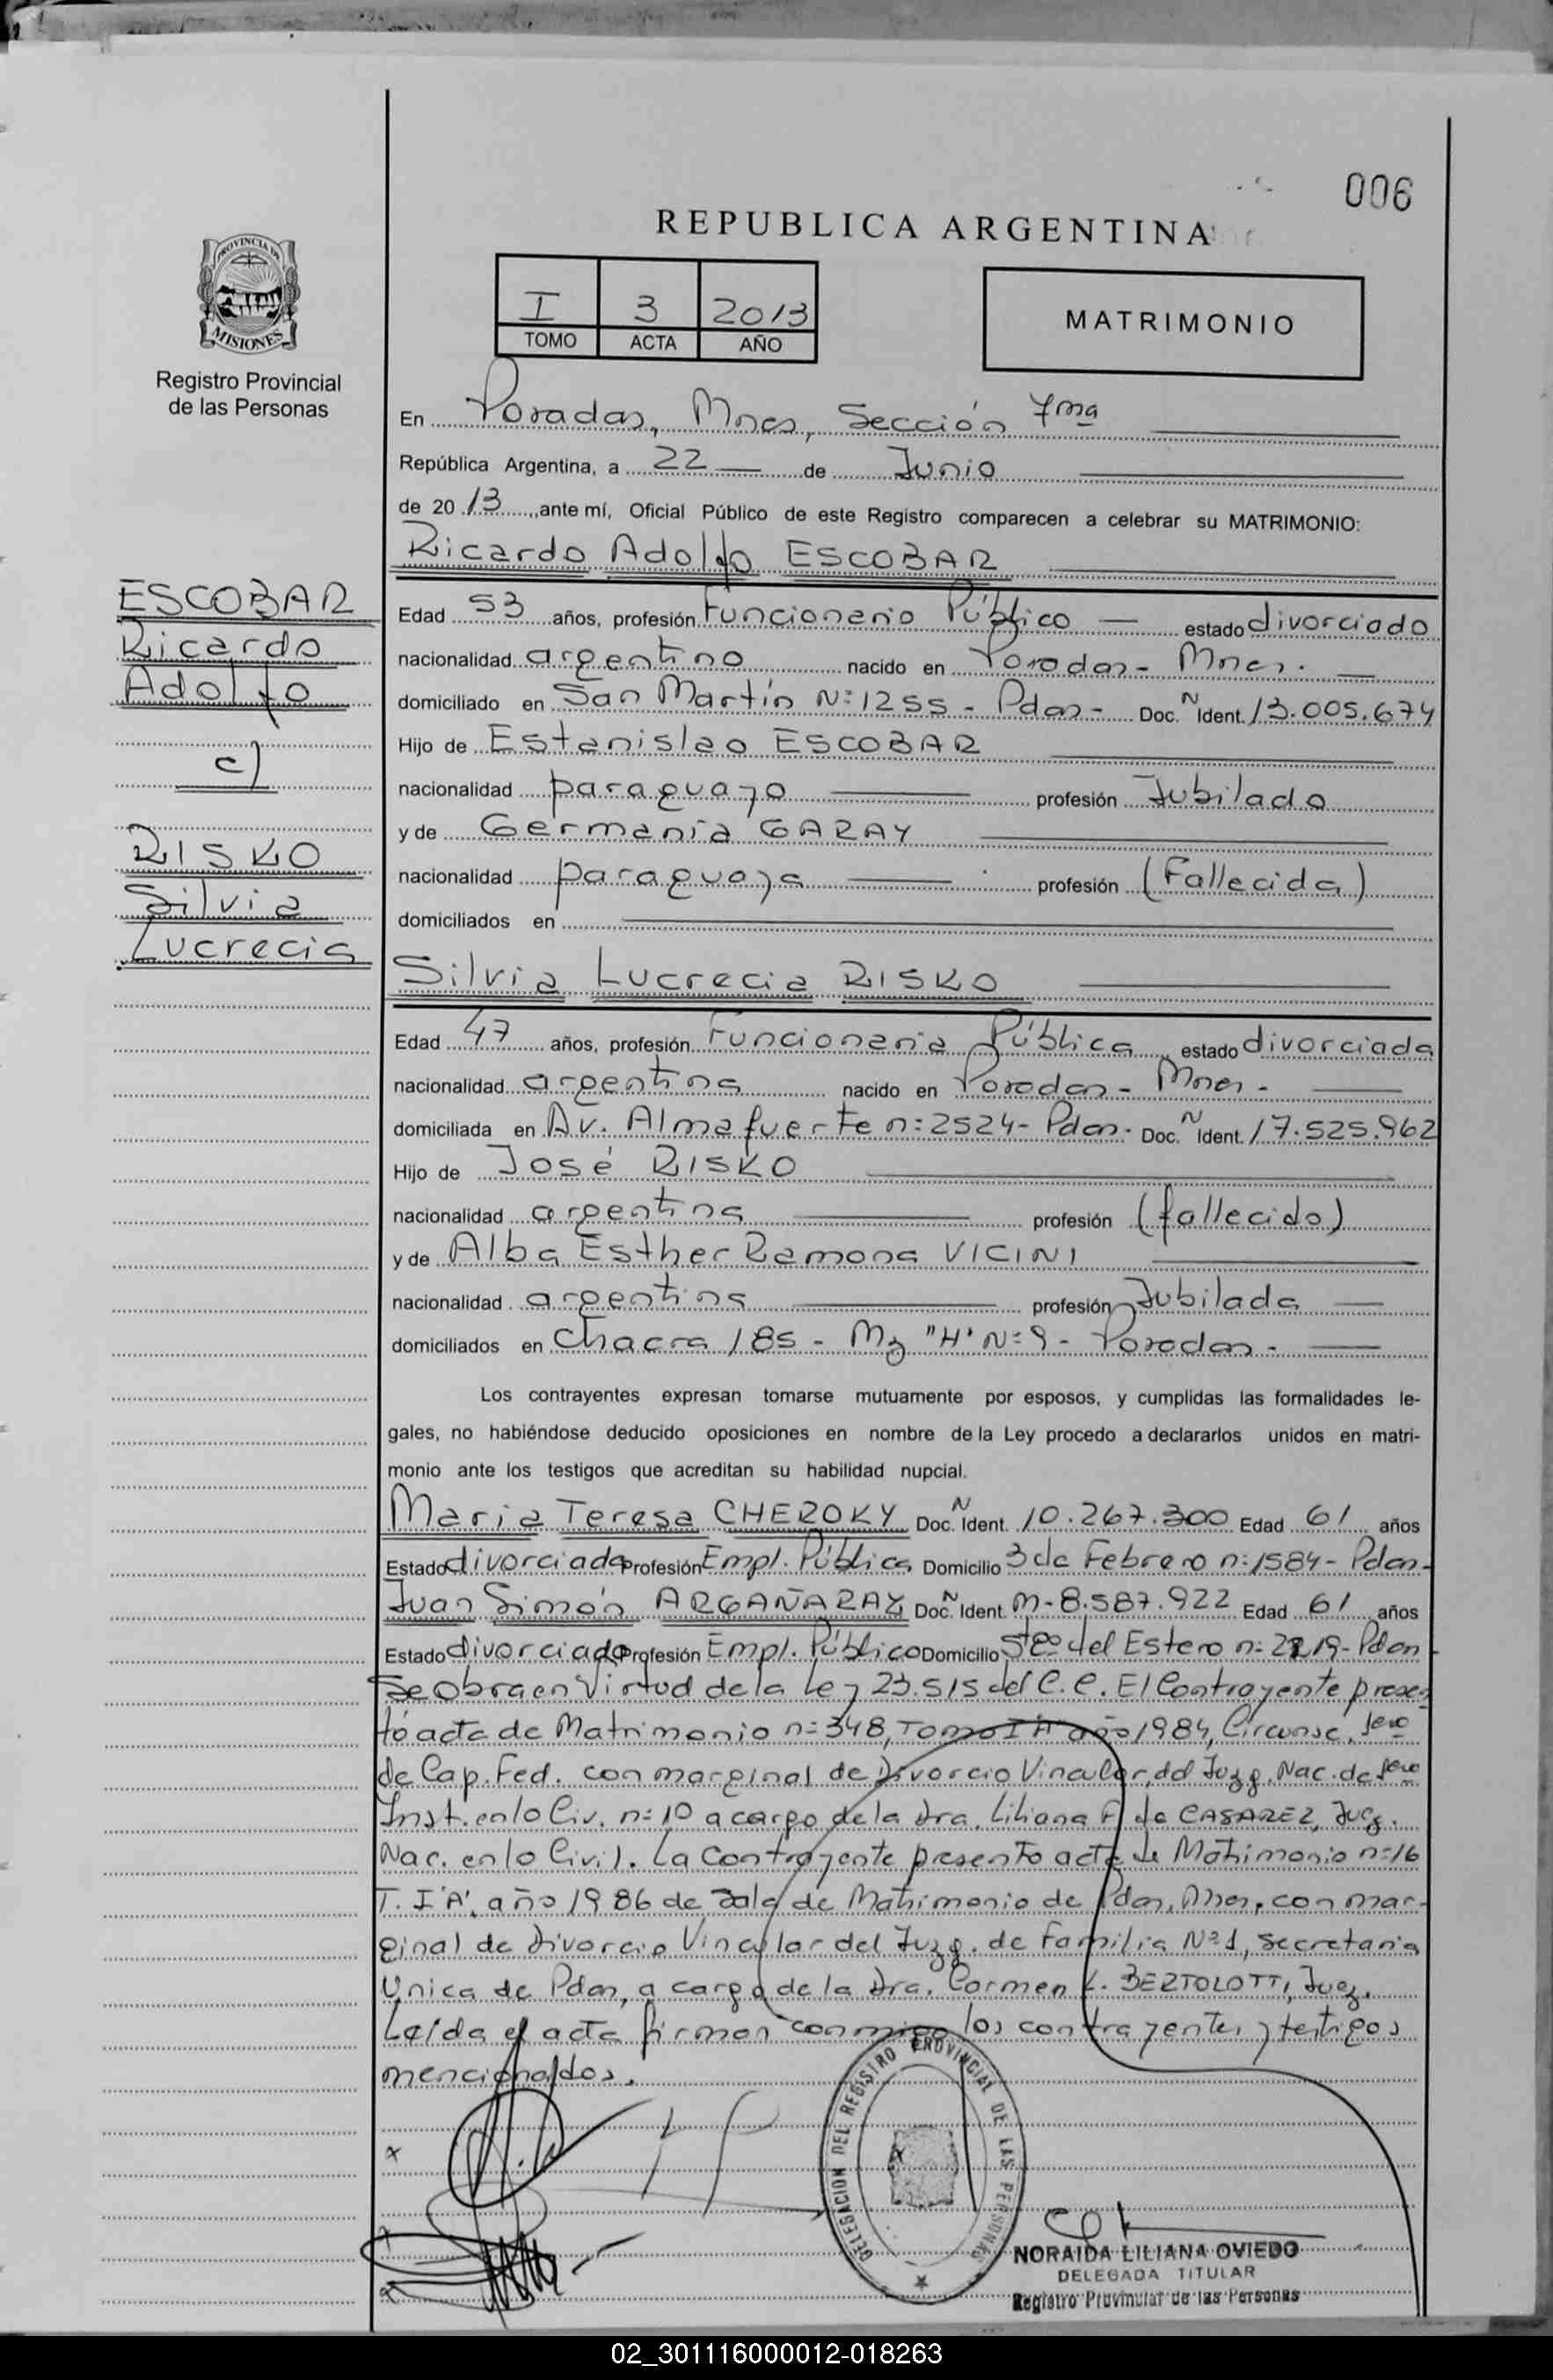 006
REPUBLICA ARGENTINA
I 3 2013
TOMO ACTA AÑO
MATRIMONIO
PROVINCIA DE
MISIONES
Registro Provincial
de las Personas
En Posadas, Mnes, Sección 7ma
República Argentina, a 22 de Junio
de 20 13, ante mí, Oficial Público de este Registro comparecen a celebrar su MATRIMONIO:
Ricardo Adolfo ESCOBAR
ESCOBAR
Ricardo
Adolfo
c/
RISKO
Silvia
Lucrecia
Edad 53 años, profesión Funcionario Público estado divorciado
nacionalidad argentino nacido en Posadas - Mnes.
domiciliado en San Martín N: 1255 - Pdas - Doc. N Ident. 13.005.674
Hijo de Estanislao ESCOBAR
nacionalidad paraguayo profesión Jubilado
y de Germania GARAY
nacionalidad paraguaya profesión (Fallecida)
domiciliados en
Silvia Lucrecia RISKO
Edad 47 años, profesión Funcionaria Pública estado divorciada
nacionalidad argentina nacido en Posadas - Mnes -
domiciliada en Av. Almafuerte n: 2524 - Pdas. Doc. N Ident. 17.525.962
Hijo de José RISKO
nacionalidad argentina profesión (fallecido)
y de Alba Esther Ramona VICINI
nacionalidad argentina profesión Jubilada
domiciliados en Chacra 185 - Mz "H" N: 9 - Posadas -
Los contrayentes expresan tomarse mutuamente por esposos, y cumplidas las formalidades le-
gales, no habiéndose deducido oposiciones en nombre de la Ley procedo a declararlos unidos en matri-
monio ante los testigos que acreditan su habilidad nupcial.
Maria Teresa CHEROKY Doc. N Ident. 10.267.300 Edad 61 años
Estado divorciada Profesión Empl. Pública Domicilio 3 de Febrero n: 1584 - Pdas -
Juan Simón ARGAÑARAZ Doc. N Ident. M-8.587.922 Edad 61 años
Estado divorciado Profesión Empl. Público Domicilio Stgo del Estero n: 2219 - Pdas -
Se obra en Virtud de la Ley 23.515 del C.C. El Contrayente presen
tó acta de Matrimonio n: 348, Tomo I "A" año 1984, Circunsc. 1era
de Cap. Fed. con marginal de Divorcio Vincular del Juzg. Nac. de 1era
Inst. en lo Civ. n: 10 a cargo de la Dra. Liliana F. de CASAREZ, Juez.
Nac. en lo Civil. La Contrayente presentó acta de Matrimonio n: 16
T. I "A", año 1986 de Sala de Matrimonio de Pdas, Mnes, con mar-
ginal de Divorcio Vincular del Juzg. de Familia Nº 1, Secretaria
Unica de Pdas, a cargo de la Dra. Carmen L. BERTOLOTTI, Juez.
Leída el acta firman conmigo los contrayentes y testigos
mencionados.
DELEGACION DEL REGISTRO PROVINCIAL DE LAS PERSONAS
NORAIDA LILIANA OVIEDO
DELEGADA TITULAR
Registro Provincial de las Personas
02_301116000012-018263